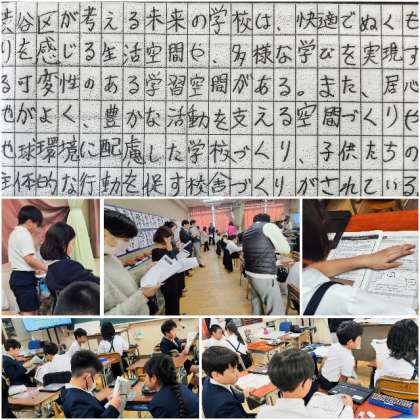 渋谷区が考える未来の学校は、快適でぬくも
りを感じる生活空間や、多様な学びを実現す
る可変性のある学習空間がある。また、居心
地がよく、豊かな活動を支える空間づくりや
地球環境に配慮した学校づくり、子供たちの
主体的な行動を促す校舎づくりがされている